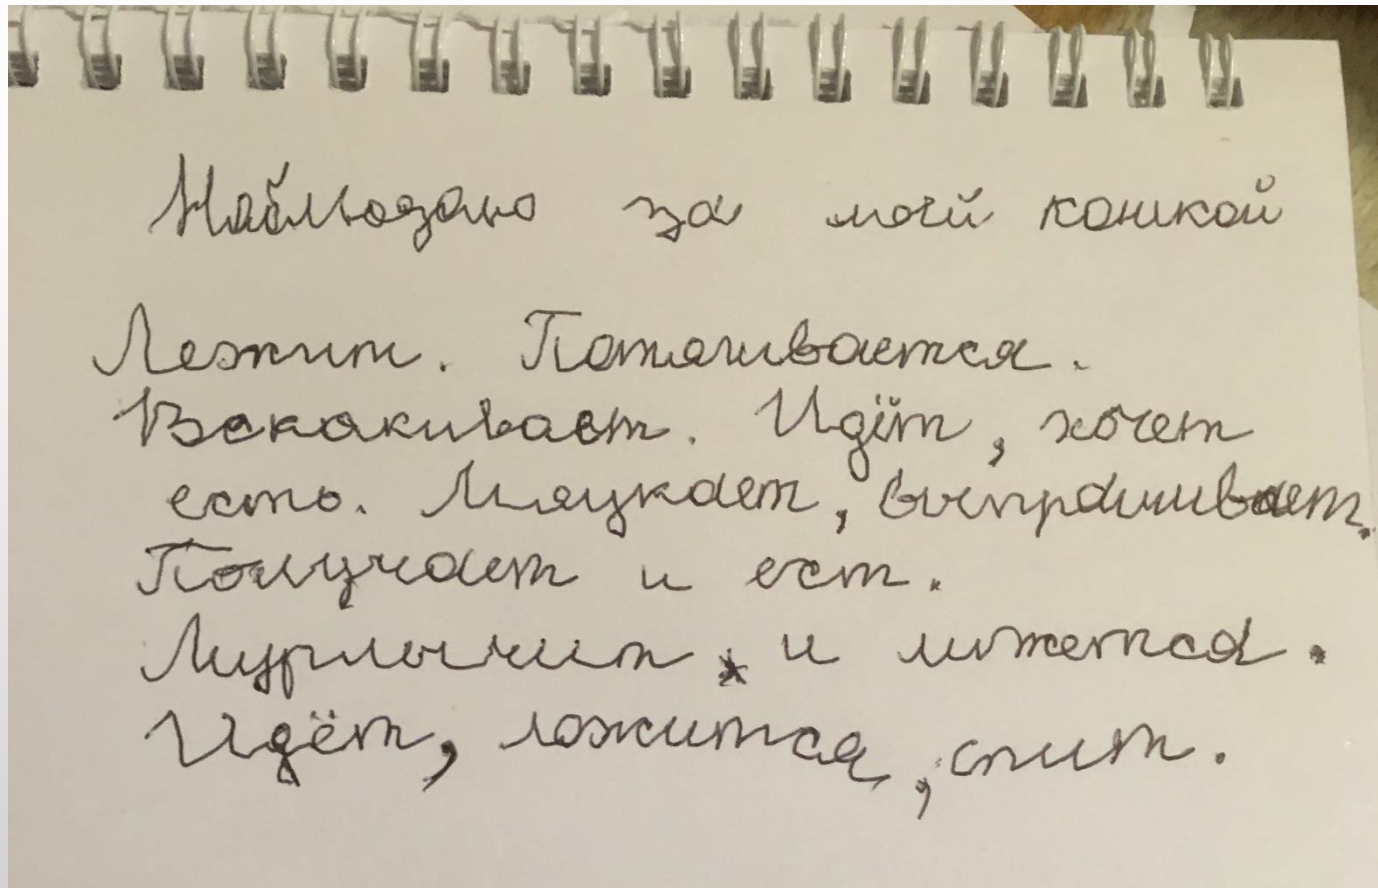 Наблюдаю за моей кошкой
Лежит. Потягивается.
Вскакивает. Идёт, хочет
есть. Мяукает, выпрашивает.
Получает и ест.
Мурлычит и лижется.
Идёт, ложится, спит.